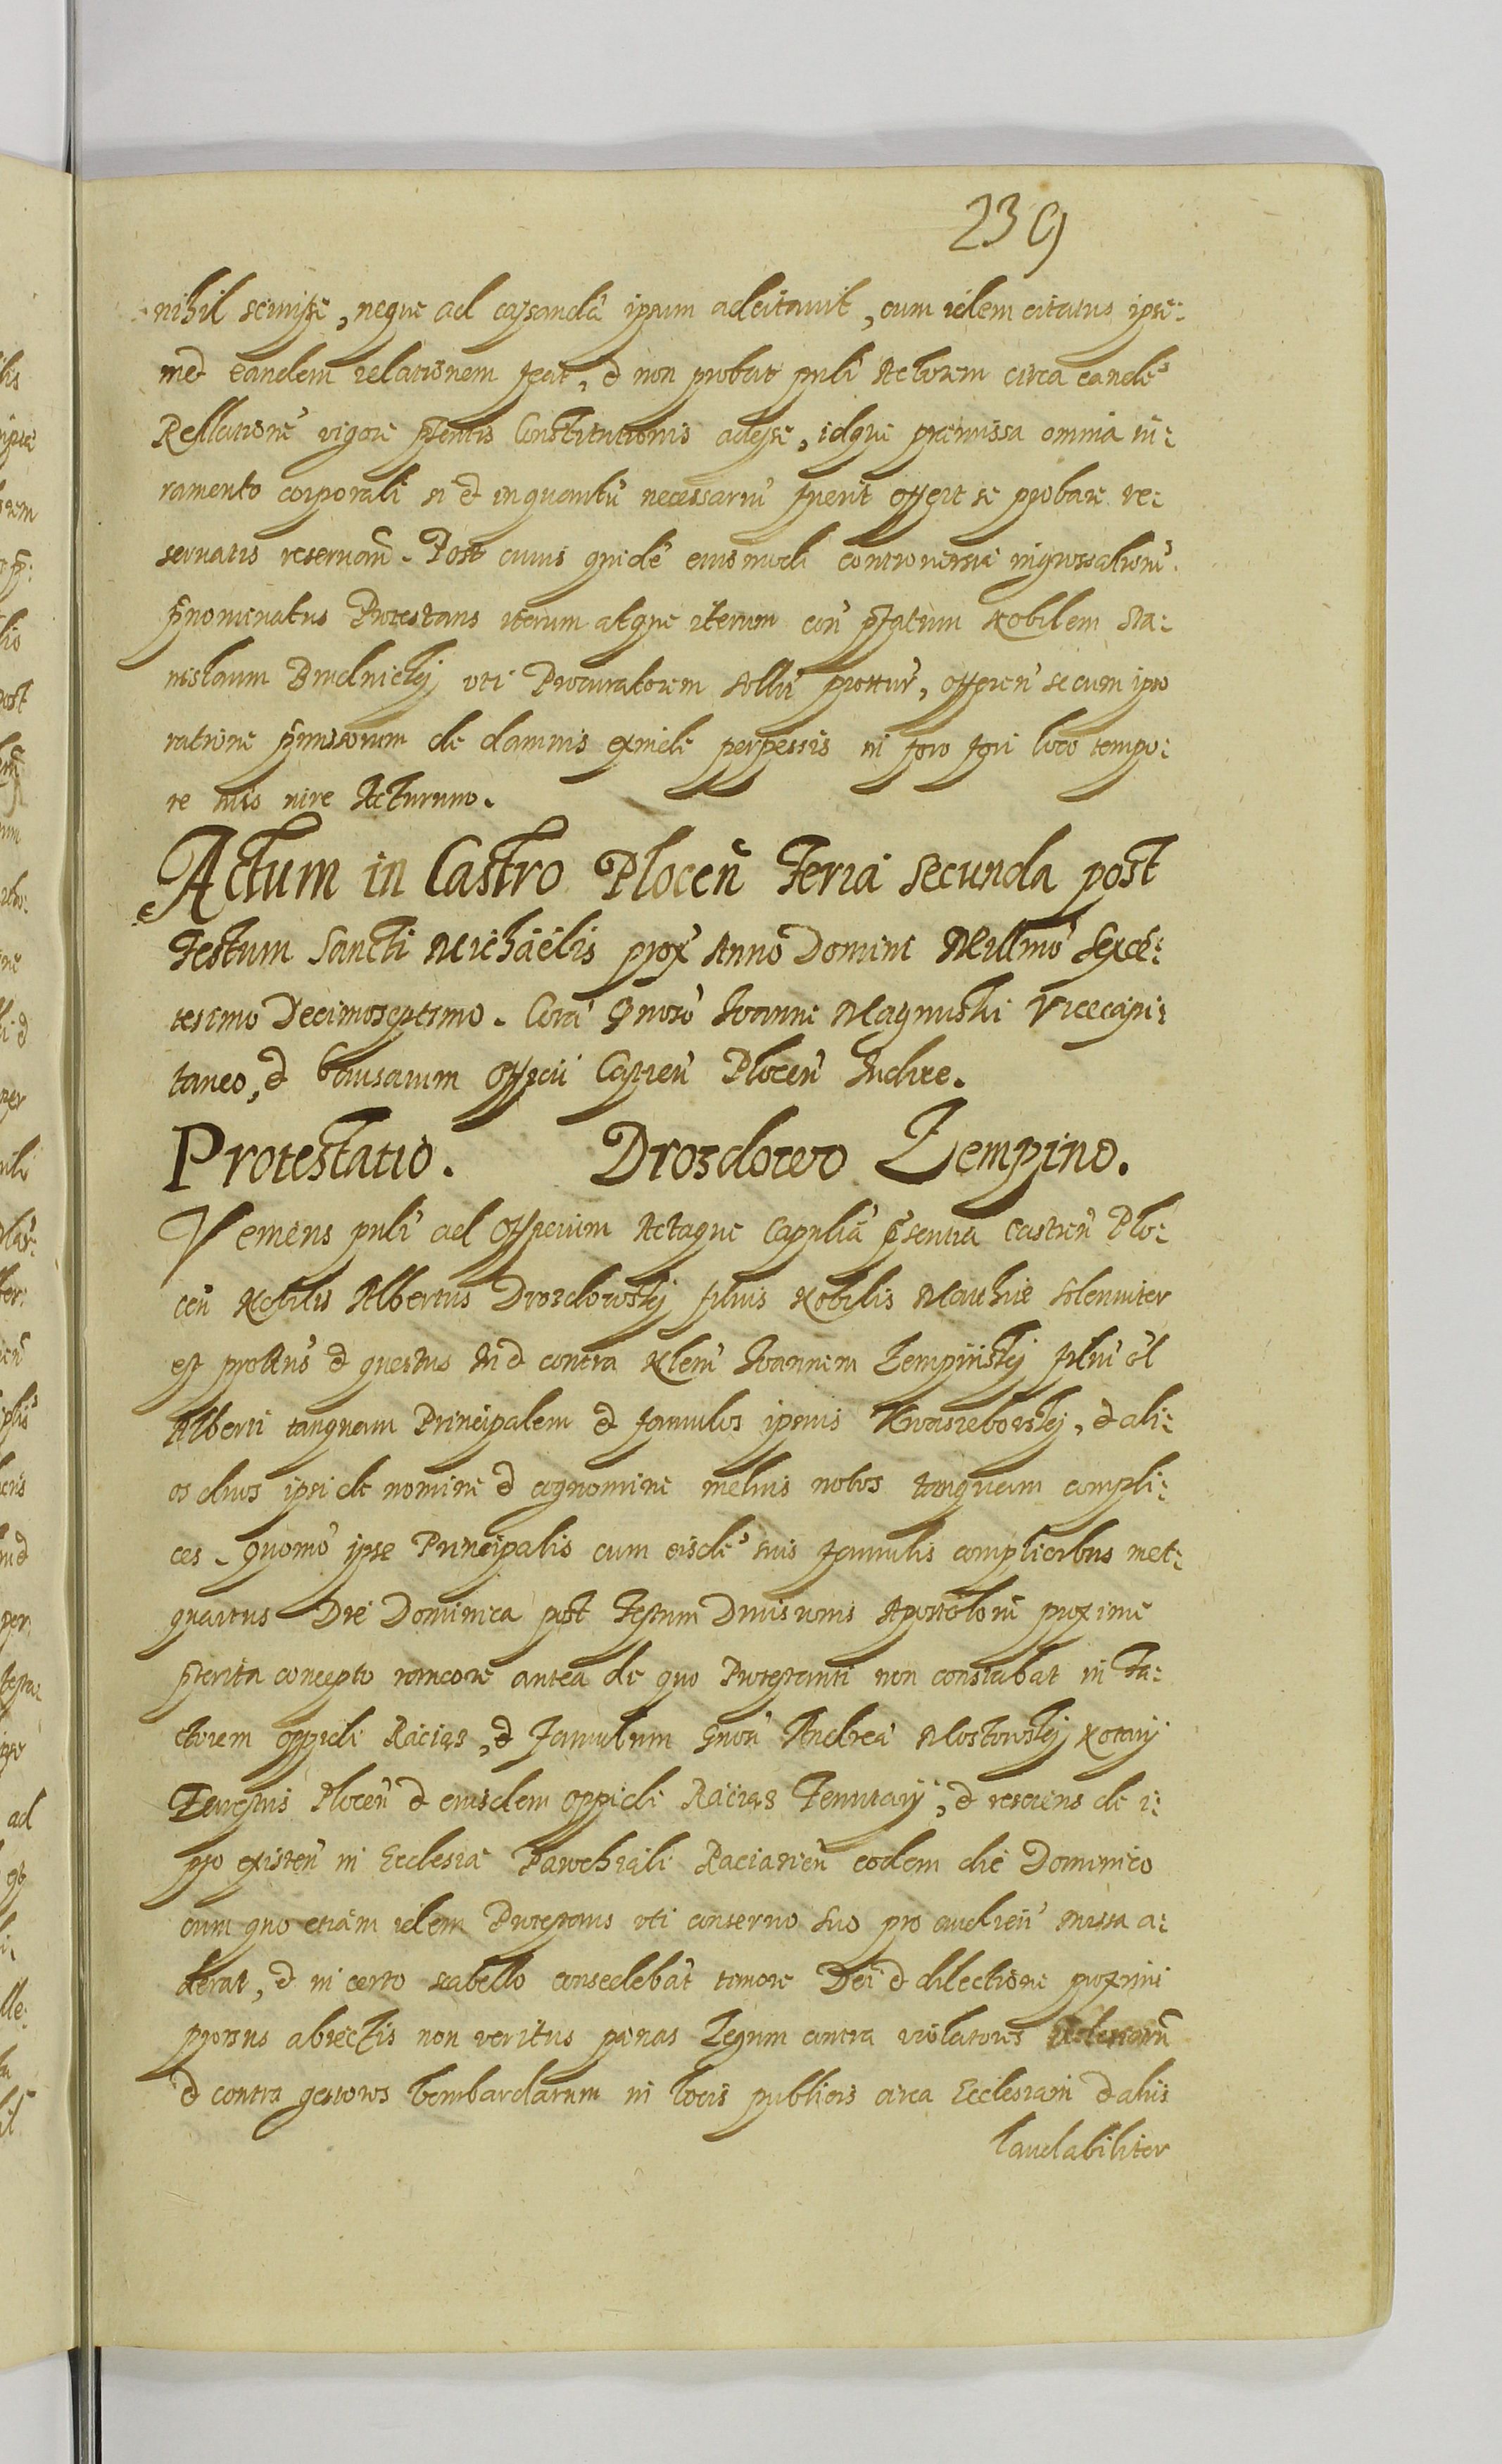 239
nihil scivisse, neque ad cassandā ipsum adcitavit, cum idem citatus ipse:
met eandem relationem fecit, et non probat puli Actorem circa eandē
Rellationē vigore pſentis Constitutionis adesse, idque præmissa omnia iu:
ramento corporali si et inquantū necessariū fuerit offert se probare re:
servatis reservañ. Post cuius quidē eiusmodi controversiæ ingrossationē
pñominatus Protestans iterum atque iterum coñ pſatum Nobilem Sta:
nislaum Brudnickij uti Procuratorem sollū prottur, offereñ se cum ipso
ratione pmissorum de damnis exinde perpessis in foro fori loco tempo:
re suis iure Acturum.
Actum in Castro Ploceñ Feria Secunda post
Festum Sancti Michaëlis prox Anno Domini Millmo Sexcē:
tesimo Decimoseptimo. Corā Gñoso Ioanne Magnuski Vicecapi:
taneo, et Causarum Officii Capneñ Ploceñ Iudice.
Protestatio. Drozdowo Zempino.
Veniens puli ad Officium Actaque Capnlia pſentia Castreñ Plo:
ceñ Nobilis Albertus Drozdowskij filius Nobilis Mathiæ solenniter
est prottus et questus In et contra Nlem Ioannem Zempinskij filiū ōl
Alberti tanquam Principalem et famulos ipsius Kwasieborskij, et ali:
os duos ipsi de nomine et cognomine melius notos tanquam compli:
ces. Quomo ipse Principalis cum eisdē suis famulis complicibus met:
quartus Die Dominica post Festum Divisionis Apostolorū proxime
pterita concepto rancore antea de quo Protestanti non constabat in Fa:
ctorem oppidi Raciąs, et famulum Gñosi Andreæ Mostowskij Notarij
Terrestris Plocen et eiusdem oppidi Raciąs Tenutarij, et resciens de i:
pso existeñ in Ecclesia Parochiali Raciązieñ eodem die Dominico
cum quo etiam idem Protestans uti conservo suo pro audieñ missa a:
derat, et in certo scabello consedebat timore Dei et dilectione proximi
prorsus abiectis non veritus pænas Legum contra violatores Ecclesiarū
et contra gestores bombardarum in locis publicis circa Ecclesiam et aliis
laudabiliter